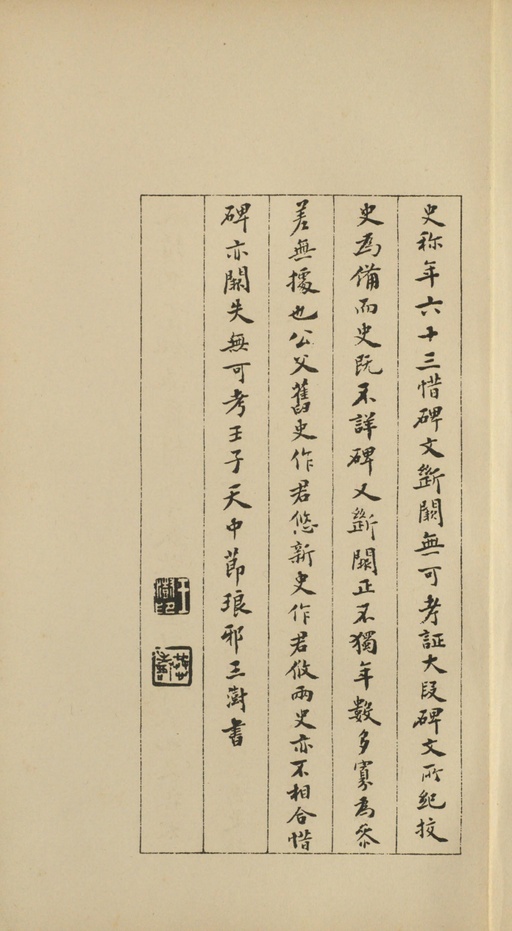 史称年六十三惜碑文斷闕無可考証大段碑文所紀挍
史為備而史既不詳碑又斷闕正不獨年數多寡為參
差無據也公父舊史作君悠新史作君攸兩史亦不相合惜
碑亦闕失無可考壬子天中節琅邪王澍書
王澍印